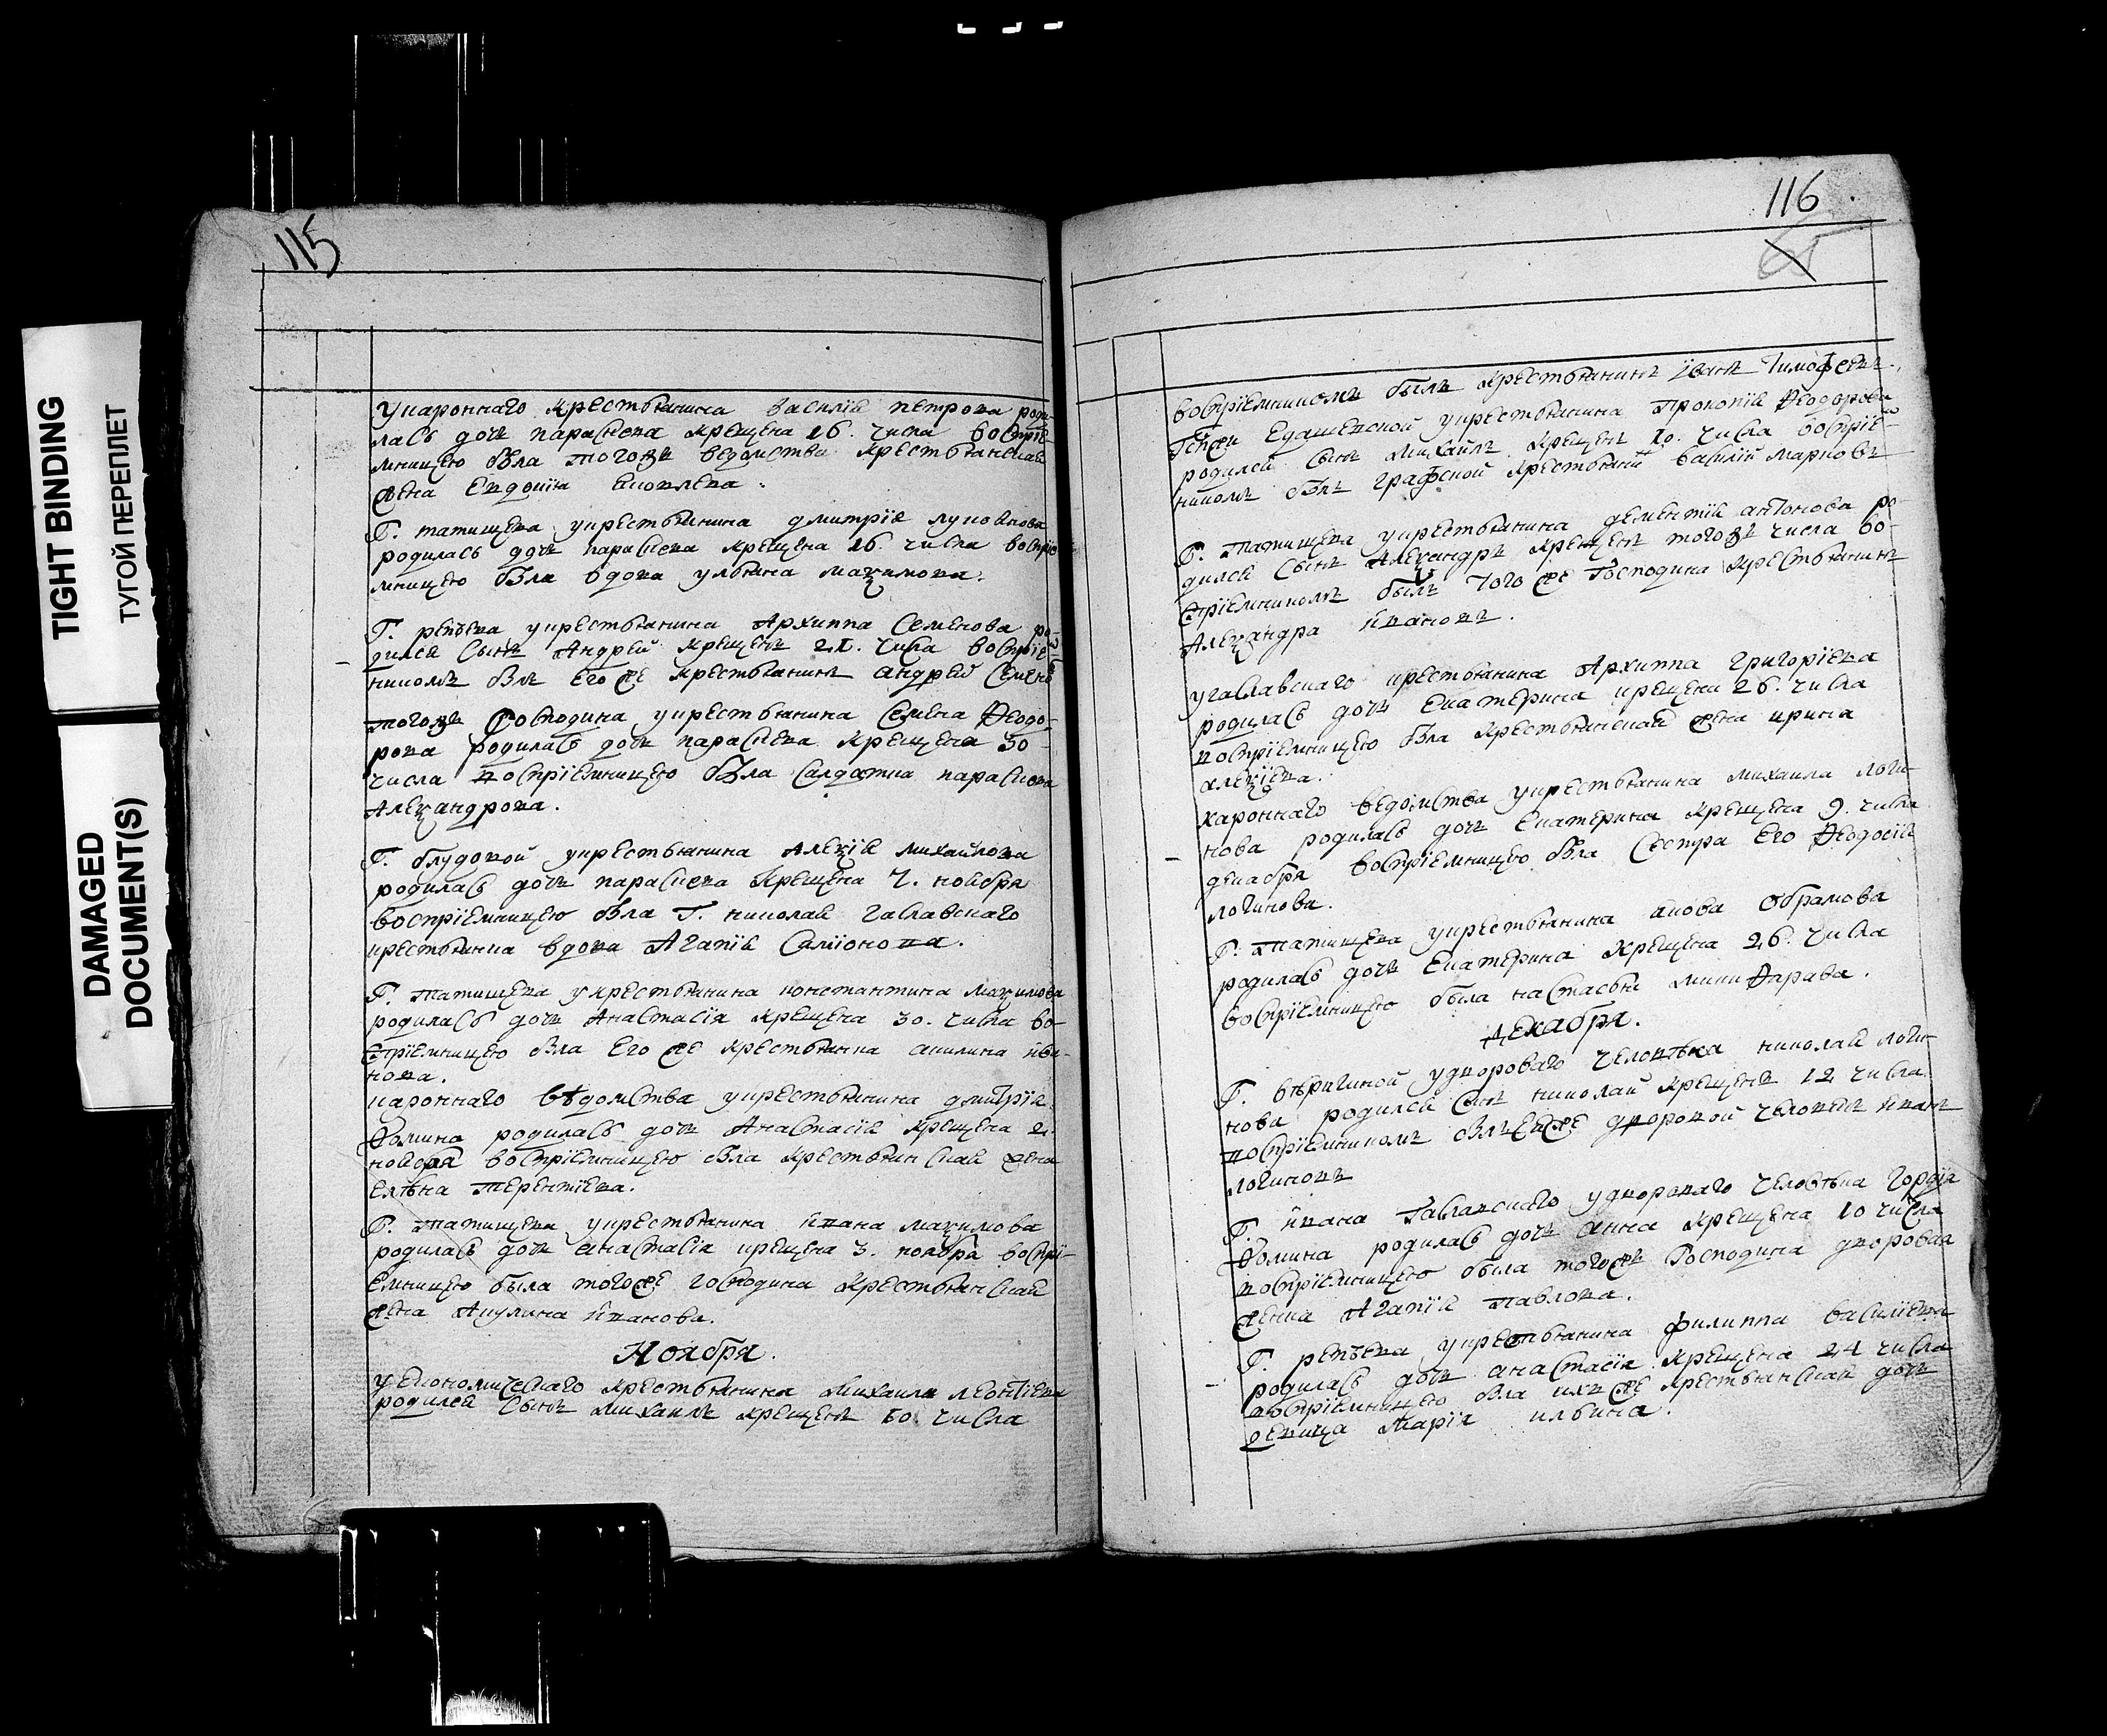 TIGHT BINDING
ТУГОЙ ПЕРЕПЛЕТ
DAMAGED
DOCUMENT(S)
115
укаронного крестьянина василія петрова роди-
лась дочь параскева крещена 26. числа воспріе-
мницею была тогожъ ведомства крестьянская
жена Евдокія Яковлева.
Г. татищева укрестьянина дмитрія
родилась дочь параскева крещена 26. числа воспріе
мницею была вдова ульяна маѯимова.
Г. репьева укрестьянина Архиппа Семенова ро-
дился сынъ Андрей крещенъ 21. числа воспріем
никомъ былъ Его же крестьянинъ андрей Семено
тогожъ Господина укрестьянина Семена Ѳеодо-
рова родилась дочь параскева крещена 30
числа воспріемницею была салдатка параскева
Алеѯандрова.
Г. блудовой укрестьянина Алеѯія михайлова
родилась дочь параскева крещена 7. ноября
воспріемницею была Г. николая гаславскаго
крестьянка вдова Агапія
Г. татищева укрестьянина константина маѯимова
родилась дочь Анастасія крещена 30. числа во-
спріемницею была Его же крестьянка акилина ива-
нова.
каронного вѣдомства укрестьянина дмитрія
Ѳомина родилась дочь Анастасія крещена 2.
ноября воспріемницею была крестьянская жена
елѣна терентіева.
Г. татищева укрестьянина ивана маѯимова
родилась дочь анастасія крещена 3. ноября воспрі-
емницею была тогоже господина крестьянская
жена Акулина иванова.
Ноября.
уекономическаго крестьянина михаила леонтіева
родился сынъ михаилъ крещенъ 10. числа
116
65
воспріемникомъ былъ крестьянинъ іванъ Тимофеевъ.
Гпжи укрестьянина Прокопія Ѳеодорова
родился сынъ михайлъ крещенъ 10. числа воспріем-
никомъ былъ графской крестьянинъ василій марковъ
Г. татищева укрестьянина дементія антонова ро-
дился сынъ Алеѯандръ крещенъ тогожъ числа во-
спріемникомъ былъ Того же Господина крестьянинъ
Алеѯандра ивановъ.
угаславскаго крестьянина Архиппа григоріева
родилась дочь Екатерина крещена 26. числа
воспріемницею была крестьянская жена ирина
алеѯіева.
каронного ведомства укрестьянина михаила логи-
нова родилась дочь Екатерина крещена 9. числа
декабря воспріемницею была сестра Его Ѳеодосія
логинова.
Г. татищева укрестьянина акова обрамова
родилась дочь Екатерина крещена 26. числа
воспріемницею была настасья
декабря.
Г. вѣригиной удвороваго человѣка николая логи-
нова родился сынъ николай крещенъ 12 числа
воспріемникомъ былъ Еяже дворовой человекъ иванъ
логиновъ
Г. ивана Гаславскаго удвороваго человѣка гордія
Ѳомина родилась дочь анна крещена 10 числа
воспріемницею была тогожъ Господина дворовая
женка Агапія Павлова.
Г. репьева укрестьянина филиппа василіева
родилась дочь анастасія крещена 24 числа
воспріемницею была ихъ же крестьянская дочь
девица Марія ильина.